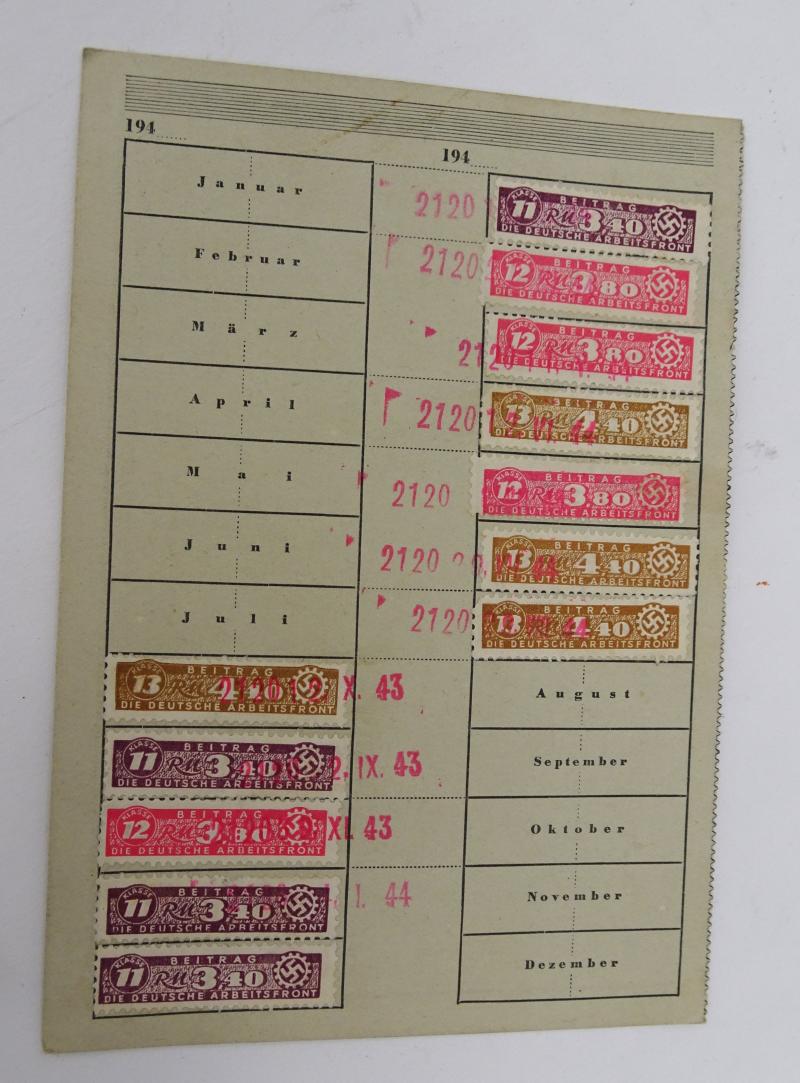 194......
194......
Januar
Februar
März
April
Mai
Juni
Juli
KLASSE 13 BEITRAG RM 4.40 DIE DEUTSCHE ARBEITSFRONT
2120 12. X. 43
KLASSE 11 BEITRAG RM 3.40 DIE DEUTSCHE ARBEITSFRONT
2. IX. 43
KLASSE 12 BEITRAG RM 3.80 DIE DEUTSCHE ARBEITSFRONT
XI. 43
KLASSE 11 BEITRAG RM 3.40 DIE DEUTSCHE ARBEITSFRONT
I. 44
KLASSE 11 BEITRAG RM 3.40 DIE DEUTSCHE ARBEITSFRONT
2120
KLASSE 11 BEITRAG RM 3.40 DIE DEUTSCHE ARBEITSFRONT
2120
KLASSE 12 BEITRAG RM 3.80 DIE DEUTSCHE ARBEITSFRONT
2120
KLASSE 12 BEITRAG RM 3.80 DIE DEUTSCHE ARBEITSFRONT
2120 12. VI. 44
KLASSE 13 BEITRAG RM 4.40 DIE DEUTSCHE ARBEITSFRONT
2120
KLASSE 12 BEITRAG RM 3.80 DIE DEUTSCHE ARBEITSFRONT
2120
KLASSE 13 BEITRAG RM 4.40 DIE DEUTSCHE ARBEITSFRONT
2120 44
KLASSE 13 BEITRAG RM 4.40 DIE DEUTSCHE ARBEITSFRONT
August
September
Oktober
November
Dezember